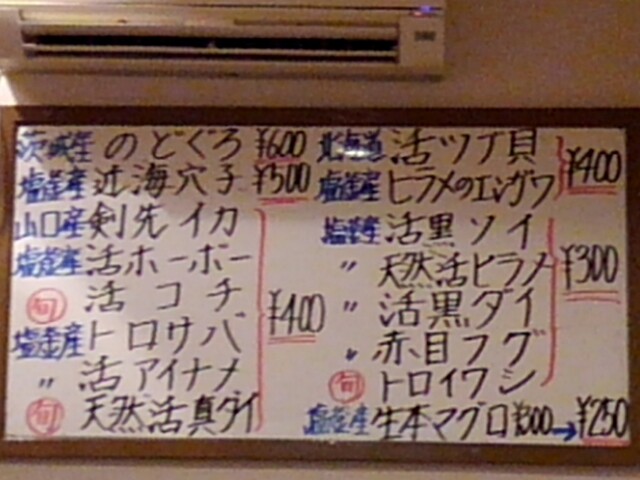 茨城産 のどぐろ ¥600
塩釜産 近海穴子 ¥500
山口産 剣先イカ
塩釜産 活ホーボー
旬 活コチ
塩釜産 トロサバ
〃 活アイナメ
旬 天然活真ダイ
¥400
北海道 活ツブ貝
塩釜産 ヒラメのエンガワ
¥400
塩釜産 活黒ソイ
〃 天然活ヒラメ
〃 活黒ダイ
〃 赤目フグ
旬 トロイワシ
¥300
塩釜産 生本マグロ ¥300→¥250